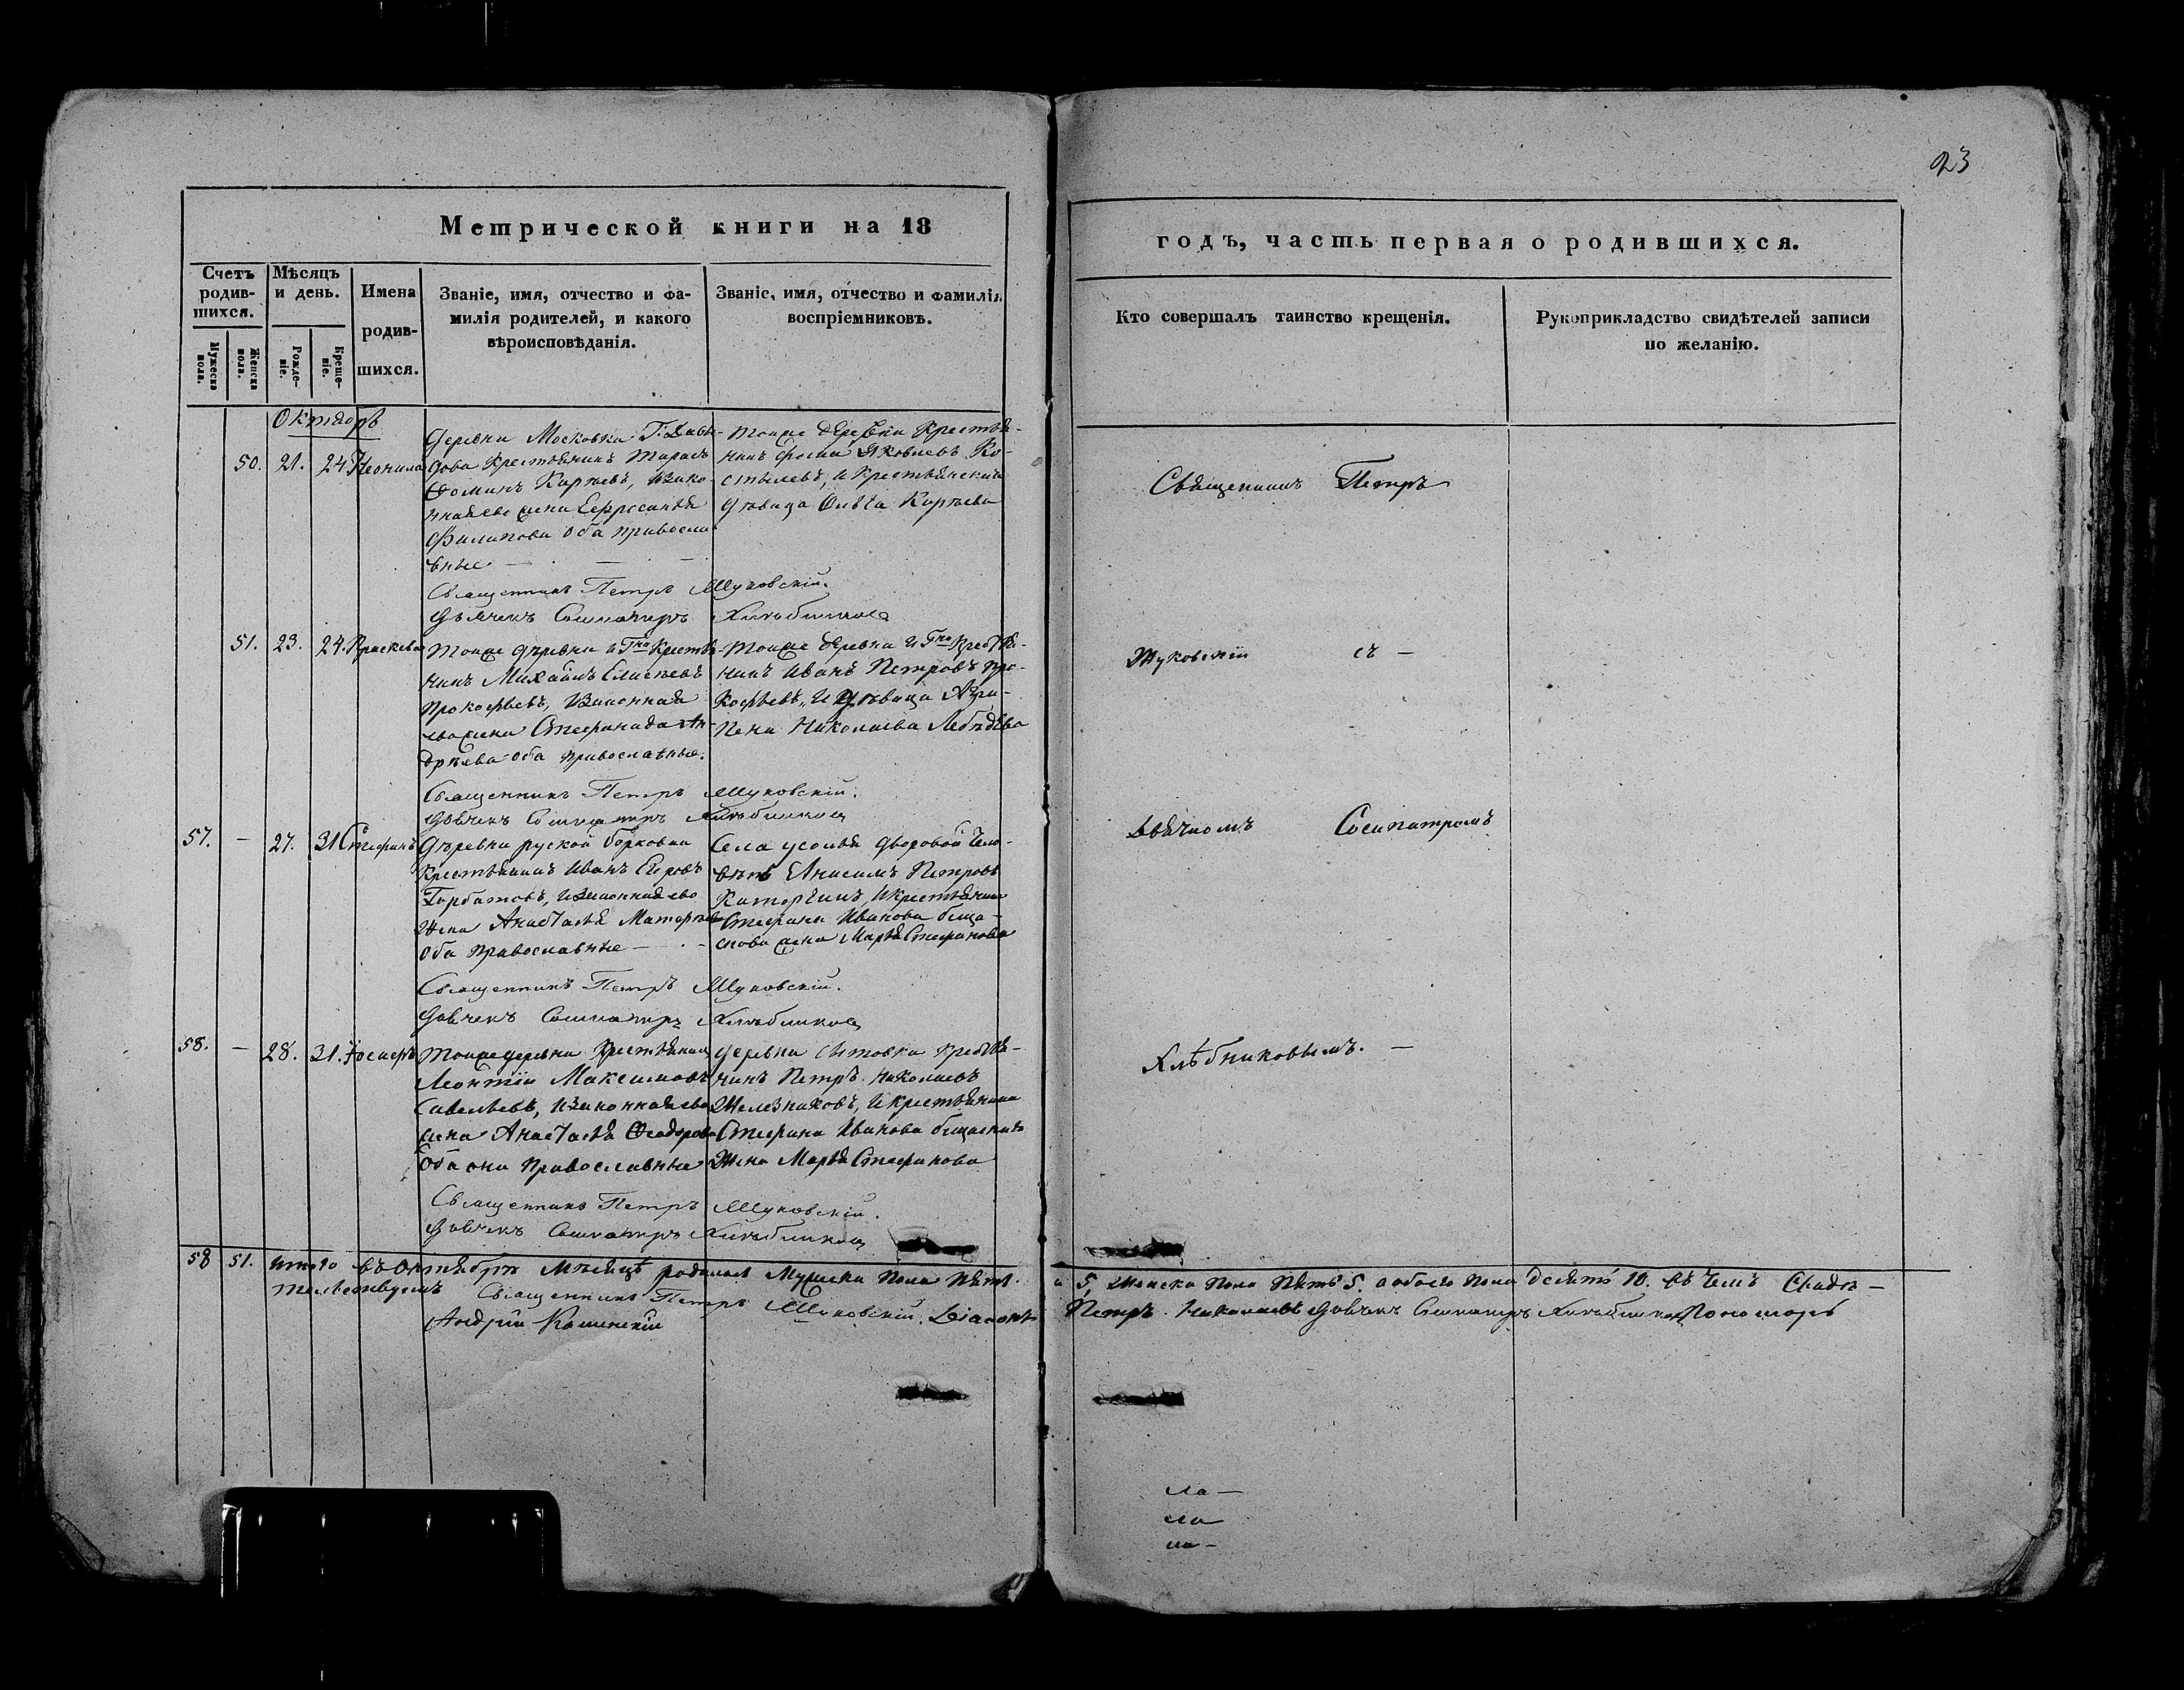 23
Метрической книги на 18
годъ, часть первая о родившихся.
Счетъ родив-шихся.
Мужеска пола.
Женска пола.
Мѣсяцъ и день.
Рожде-ніе.
Креще-ніе.
Имена родив-шихся.
Званіе, имя, отчество и фа-
милія родителей, и какого
вѣроисповѣданія.
Званіе, имя, отчество и фамилія
воспріемниковъ.
Кто совершалъ таинство крещенія.
Рукоприкладство свидѣтелей записи
по желанію.
Октябрь
50. 21. 24. Неонила
Деревни Московки Г. Давы-
дова Крестьянинъ Тарасъ
Фоминъ Каргаевъ, изако-
нная ево жена
Филипова оба правосла
вные
Тойже деревни Крестья-
нинъ Фома Яковлевъ Ко-
стылевъ, и Крестьянская
дѣвица Ольга
Священникъ Петръ Жуковскій.
Дьячекъ Сосипатръ Хлѣбниковъ
51. 23. 24. Праскева
Тойже деревни и Гна Крестья-
нинъ Михайлъ Елисѣевъ
Прокофьевъ, изаконная
ево жена Стефанида Ан-
дрѣева оба православные.
Тойже деревни и Гна Крестья-
нинъ Иванъ Петровъ Про-
кофьевъ, и дѣвица Агри-
пена Николаева Лебедѣва
Священникъ Петръ Жуковскій.
Дьячекъ Сосипатръ Хлѣбниковъ
57. — 27. 31 Стефанъ
Деревни руской борковки
Крестьянинъ Иванъ Егоровъ
Горбатовъ, изаконная ево
жена Анастасья
оба православные —
Села усолья дворовой чело-
вѣкъ Анисимъ Петровъ
Каторгинъ, и крестьянина
Стефана Иванова
жена Марья Стефанова
Священникъ Петръ Жуковскій.
Дьячекъ Сосипатръ Хлѣбниковъ
58. — 28. 31. Іосифъ
Тойже деревни Крестьянинъ
Леонтій Максимовъ
Савельевъ, изаконная ево
жена Анастасья Феодорова
Оба они православные
деревни Аскулки
нинъ Петръ Николаевъ
Железнаковъ, и крестьянина
Стефана Иванова
жена Марья Стефанова
Священникъ Петръ Жуковскій.
Дьячекъ Сосипатръ Хлѣбниковъ
Священникъ Петръ
Жуковскій съ —
Дьячкомъ Сосипатромъ
Хлѣбниковымъ. —
58 51. Итого въ Октябрѣ мѣсяцѣ родилось Мужеска пола пять 5, Женска пола пять 5. а обоего пола десять 10. въ чемъ Свидѣ-
тельствуемъ Священникъ Петръ Жуковскій. Діаконъ Петръ Николаевъ Дьячекъ Сосипатръ Хлѣбниковъ Пономарь
Андрей Каменскій